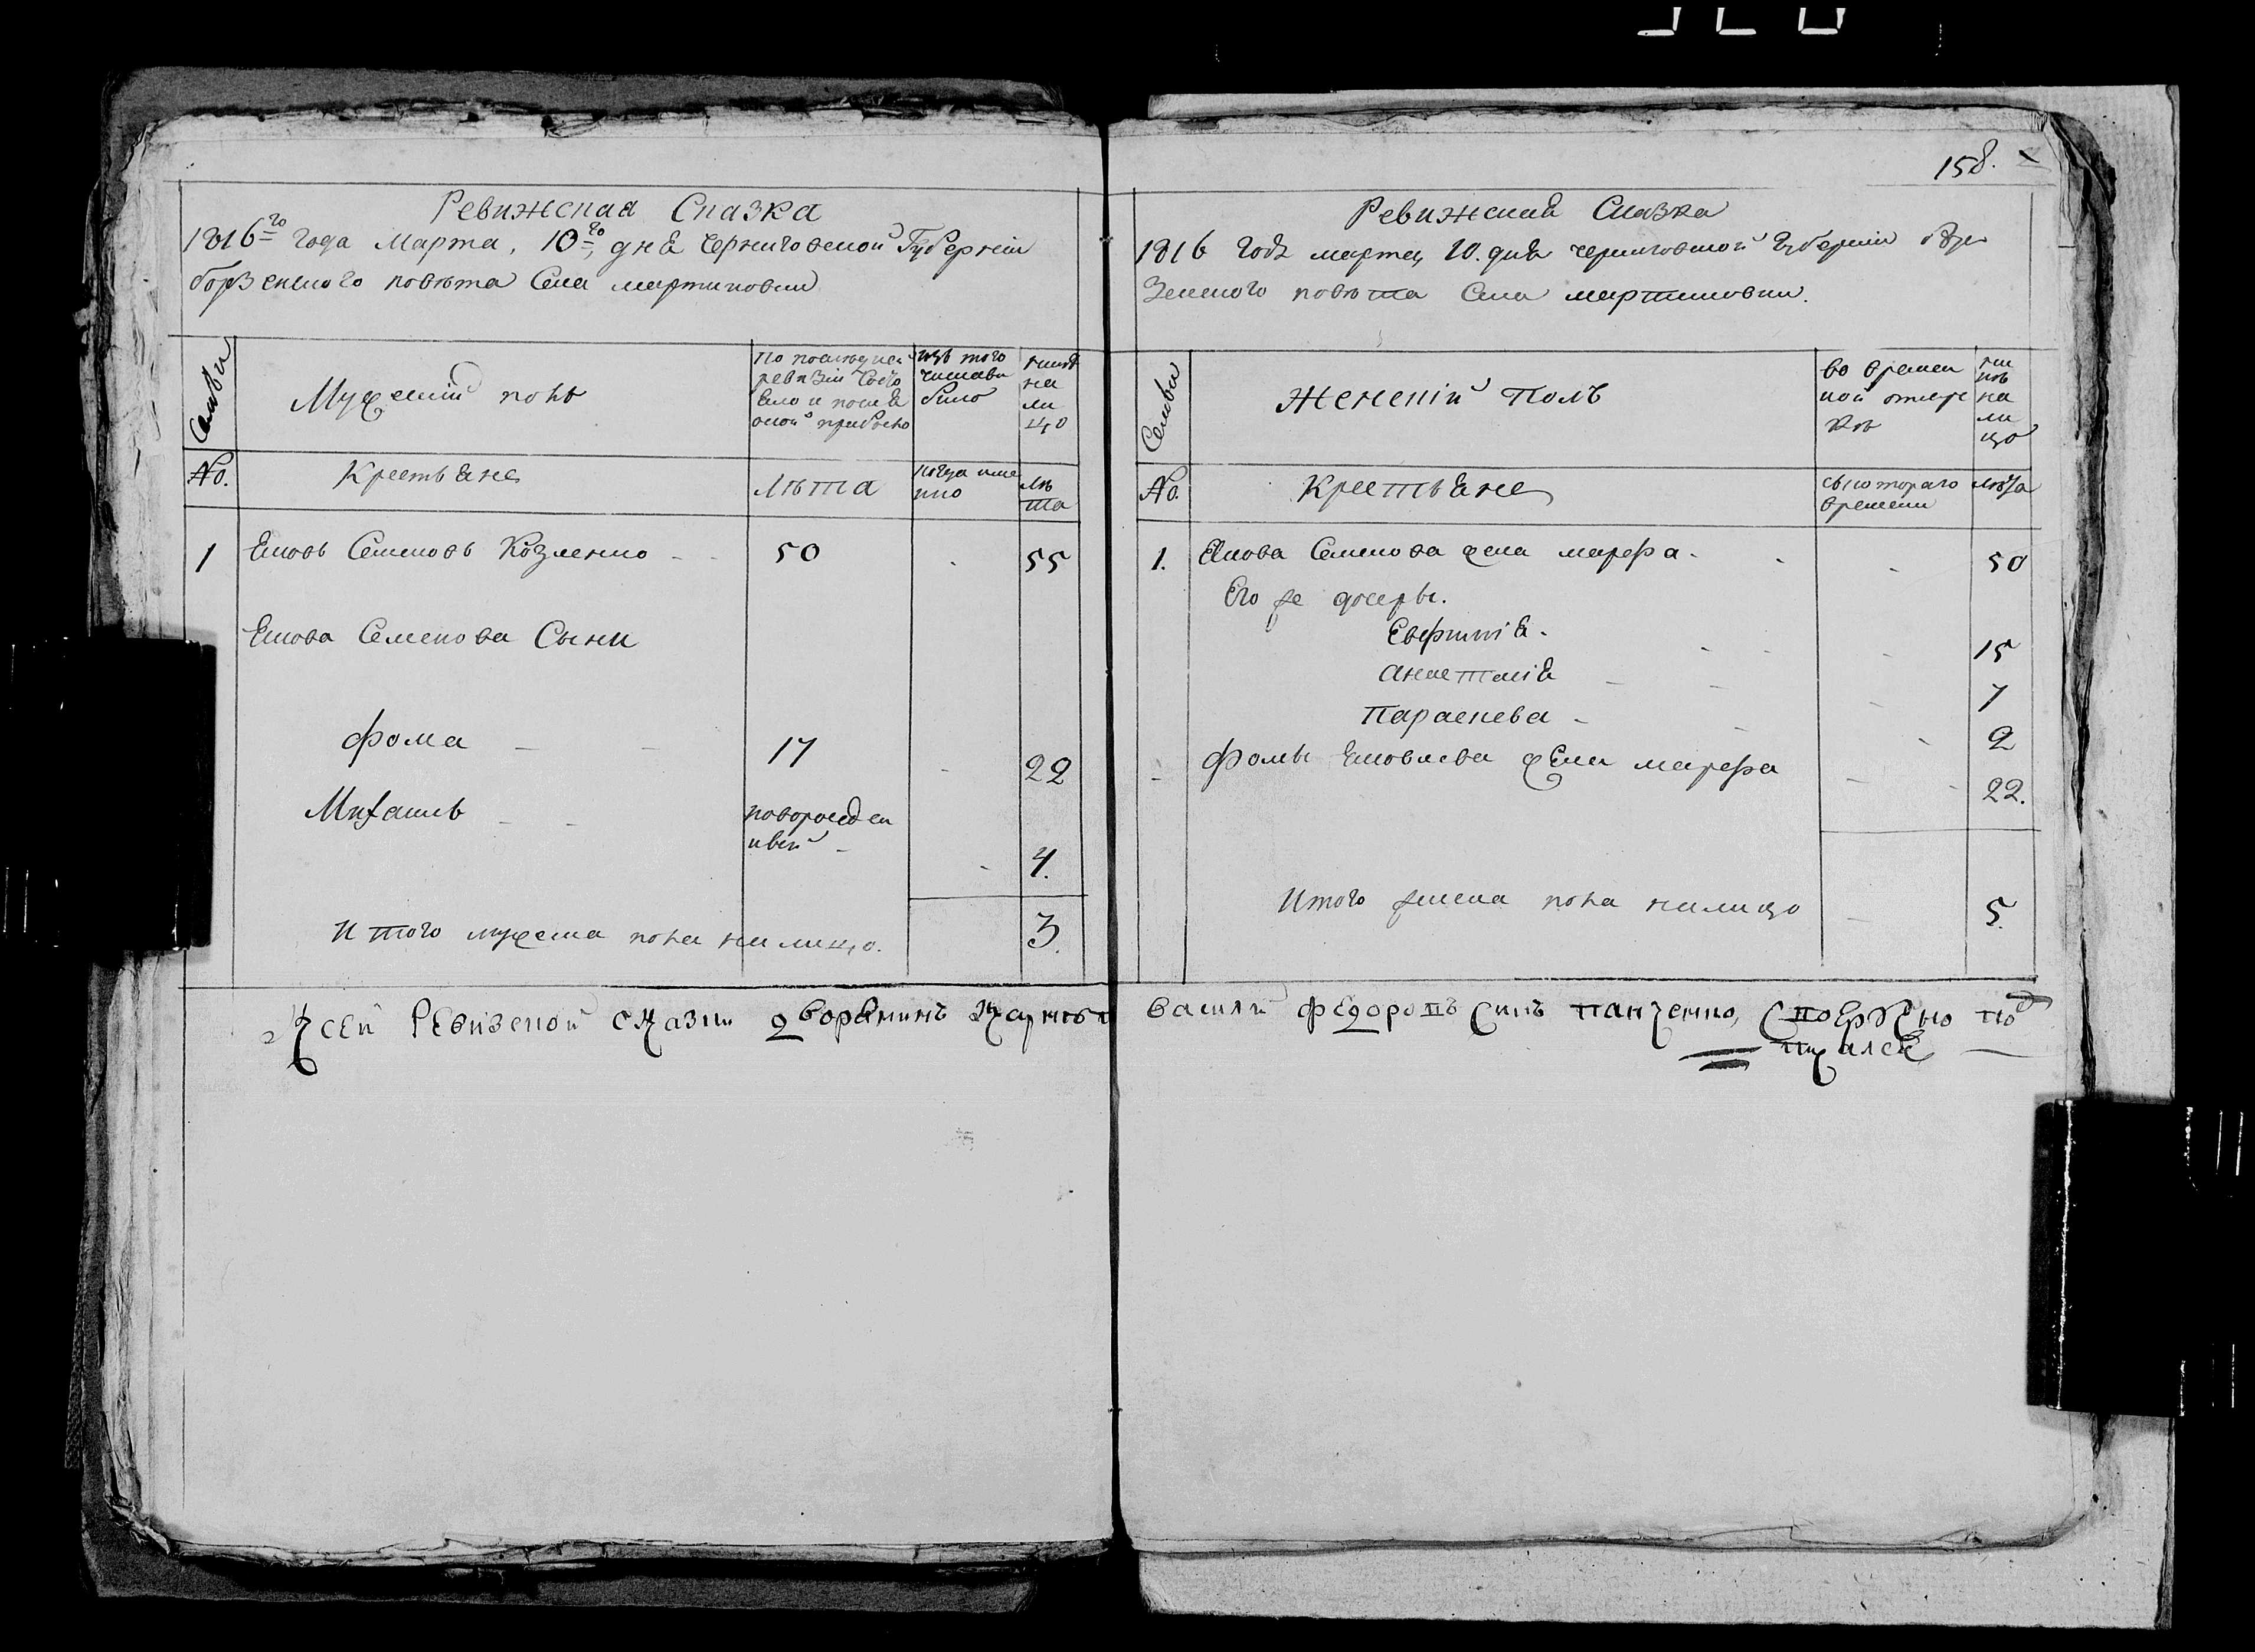 Ревижская Сказка
1816го года Марта, 10го дня Черниговской Губерніи
борзенского повѣта Села мартиновки
Семьи
Мужескій полъ
По последней
ревизіи состо
яло и после
оной прибыло
изъ того
числа вы
было
ныне
на
ли
цо
No.
Крестьяне
Лѣта
когда име
нно
Лѣ
та
1 Яковъ Семеновъ Козленко - - 50 . 55
Якова Семенова Сыни
Фома - - 17 - 22
Михаилъ - - новорожден
ный - - 4.
Итого мужеска пола на лицо. 3.
158.
Ревижская Сказка
1816 года марта, 10. дня черниговской губерніи бор
зенского повѣта Села мартиновки.
Семьи
Женскій Полъ
во времен
ной отлуч
кѣ
ны
нѣ
на
ли
цо
No.
Крестьяне
съ котораго
времени
лѣта
1. Якова Семенова жена марфа - - - 50
Его же дочеры.
Евфимія - - - - 15
Анастасія - - - 7
Параскева - - - 2
- Фомы Яковлева жена марфа - - 22.
Итого женска пола налицо - 5.
К сей Ревизской сказки дворянинъ Василий Федоровъ синъ Панченко,
подписался